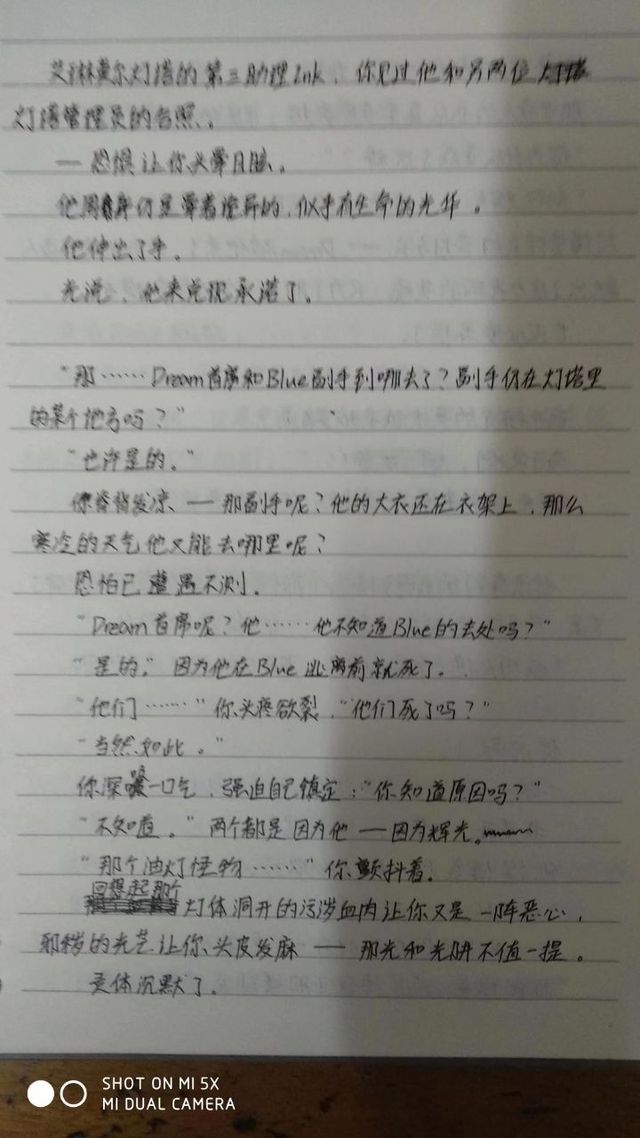 艾琳莫尔灯塔的第三助理Ink,你见过他和另两位
灯塔管理员的合照。
—恐惧让你头晕目眩。
他周身仍笼罩着诡异的,似乎有生命的光华。
他伸出了手。
光说,他来兑现承诺了。
"那……Dream首席和Blue副手到哪去了?副手仍在灯塔里
的某个地方吗?"
"也许是的。"
你脊背发凉—那副手呢?他的大衣还在衣架上,那么
寒冷的天气他又能去哪里呢?
恐怕已遭遇不测。
"Dream首席呢?他……他不知道Blue的去处吗?"
"是的。"因为他在Blue逃离前就死了。
"他们……"你头疼欲裂,"他们死了吗?"
"当然如此。"
你深吸一口气,强迫自己镇定:"你知道原因吗?"
"不知道。"两个都是因为他—因为辉光。
"那个油灯怪物……"你颤抖着。
回想起那个
灯体洞开的污秽血肉让你又是一阵恶心,
邪秽的光芒让你头皮发麻—那光和光阱不值一提。
灵体沉默了。
SHOT ON MI 5X
MI DUAL CAMERA